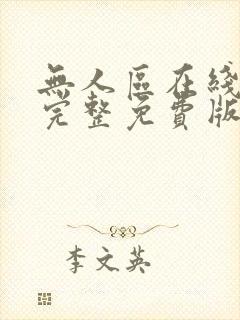 無人區在綫
完整免費版
李文英